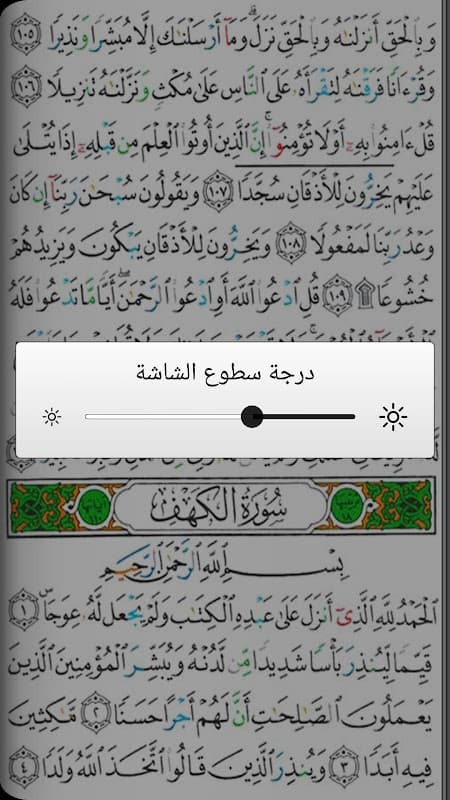 وَبِالْحَقِّ أَنزَلْنَٰهُ وَبِالْحَقِّ نَزَلَ ۗ وَمَآ أَرْسَلْنَٰكَ إِلَّا مُبَشِّرًا وَنَذِيرًا ١٠٥
وَقُرْءَانًا فَرَقْنَٰهُ لِتَقْرَأَهُۥ عَلَى النَّاسِ عَلَىٰ مُكْثٍ وَنَزَّلْنَٰهُ تَنزِيلًا ١٠٦
قُلْ ءَامِنُوا۟ بِهِۦٓ أَوْ لَا تُؤْمِنُوٓا۟ ۚ إِنَّ الَّذِينَ أُوتُوا۟ الْعِلْمَ مِن قَبْلِهِۦٓ إِذَا يُتْلَىٰ
عَلَيْهِمْ يَخِرُّونَ لِلْأَذْقَانِ سُجَّدًا ١٠٧ وَيَقُولُونَ سُبْحَٰنَ رَبِّنَآ إِن كَانَ
وَعْدُ رَبِّنَا لَمَفْعُولًا ١٠٨ وَيَخِرُّونَ لِلْأَذْقَانِ يَبْكُونَ وَيَزِيدُهُمْ
خُشُوعًا ۩ ١٠٩ قُلِ ادْعُوا۟ اللَّهَ أَوِ ادْعُوا۟ الرَّحْمَٰنَ ۖ أَيًّا مَّا تَدْعُوا۟ فَلَهُ
درجة سطوع الشاشة
سُورَةُ الكَهْفِ
بِسْمِ اللَّهِ الرَّحْمَٰنِ الرَّحِيمِ
الْحَمْدُ لِلَّهِ الَّذِىٓ أَنزَلَ عَلَىٰ عَبْدِهِ الْكِتَٰبَ وَلَمْ يَجْعَل لَّهُۥ عِوَجَا ۜ ١
قَيِّمًا لِّيُنذِرَ بَأْسًا شَدِيدًا مِّن لَّدُنْهُ وَيُبَشِّرَ الْمُؤْمِنِينَ الَّذِينَ
يَعْمَلُونَ الصَّٰلِحَٰتِ أَنَّ لَهُمْ أَجْرًا حَسَنًا ٢ مَّٰكِثِينَ
فِيهِ أَبَدًا ٣ وَيُنذِرَ الَّذِينَ قَالُوا۟ اتَّخَذَ اللَّهُ وَلَدًا ٤